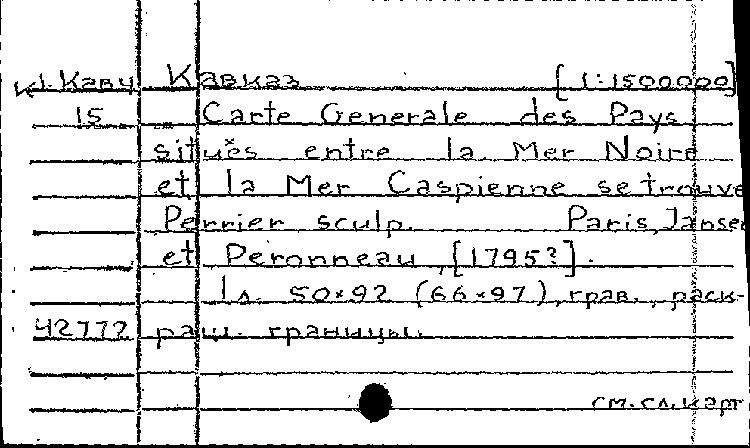 К1.Кавч Кавказ [1:1500000]
15 Carte Generale des Pays
situès entre la Mer Noire
et la Mer Caspienne se trouve
Perrier sculp. Paris, Jansen
et Peronneau, [1795?].
1л. 50×92 (66×97), грав., раск-
42772 раш. границы.
см. сл. карт